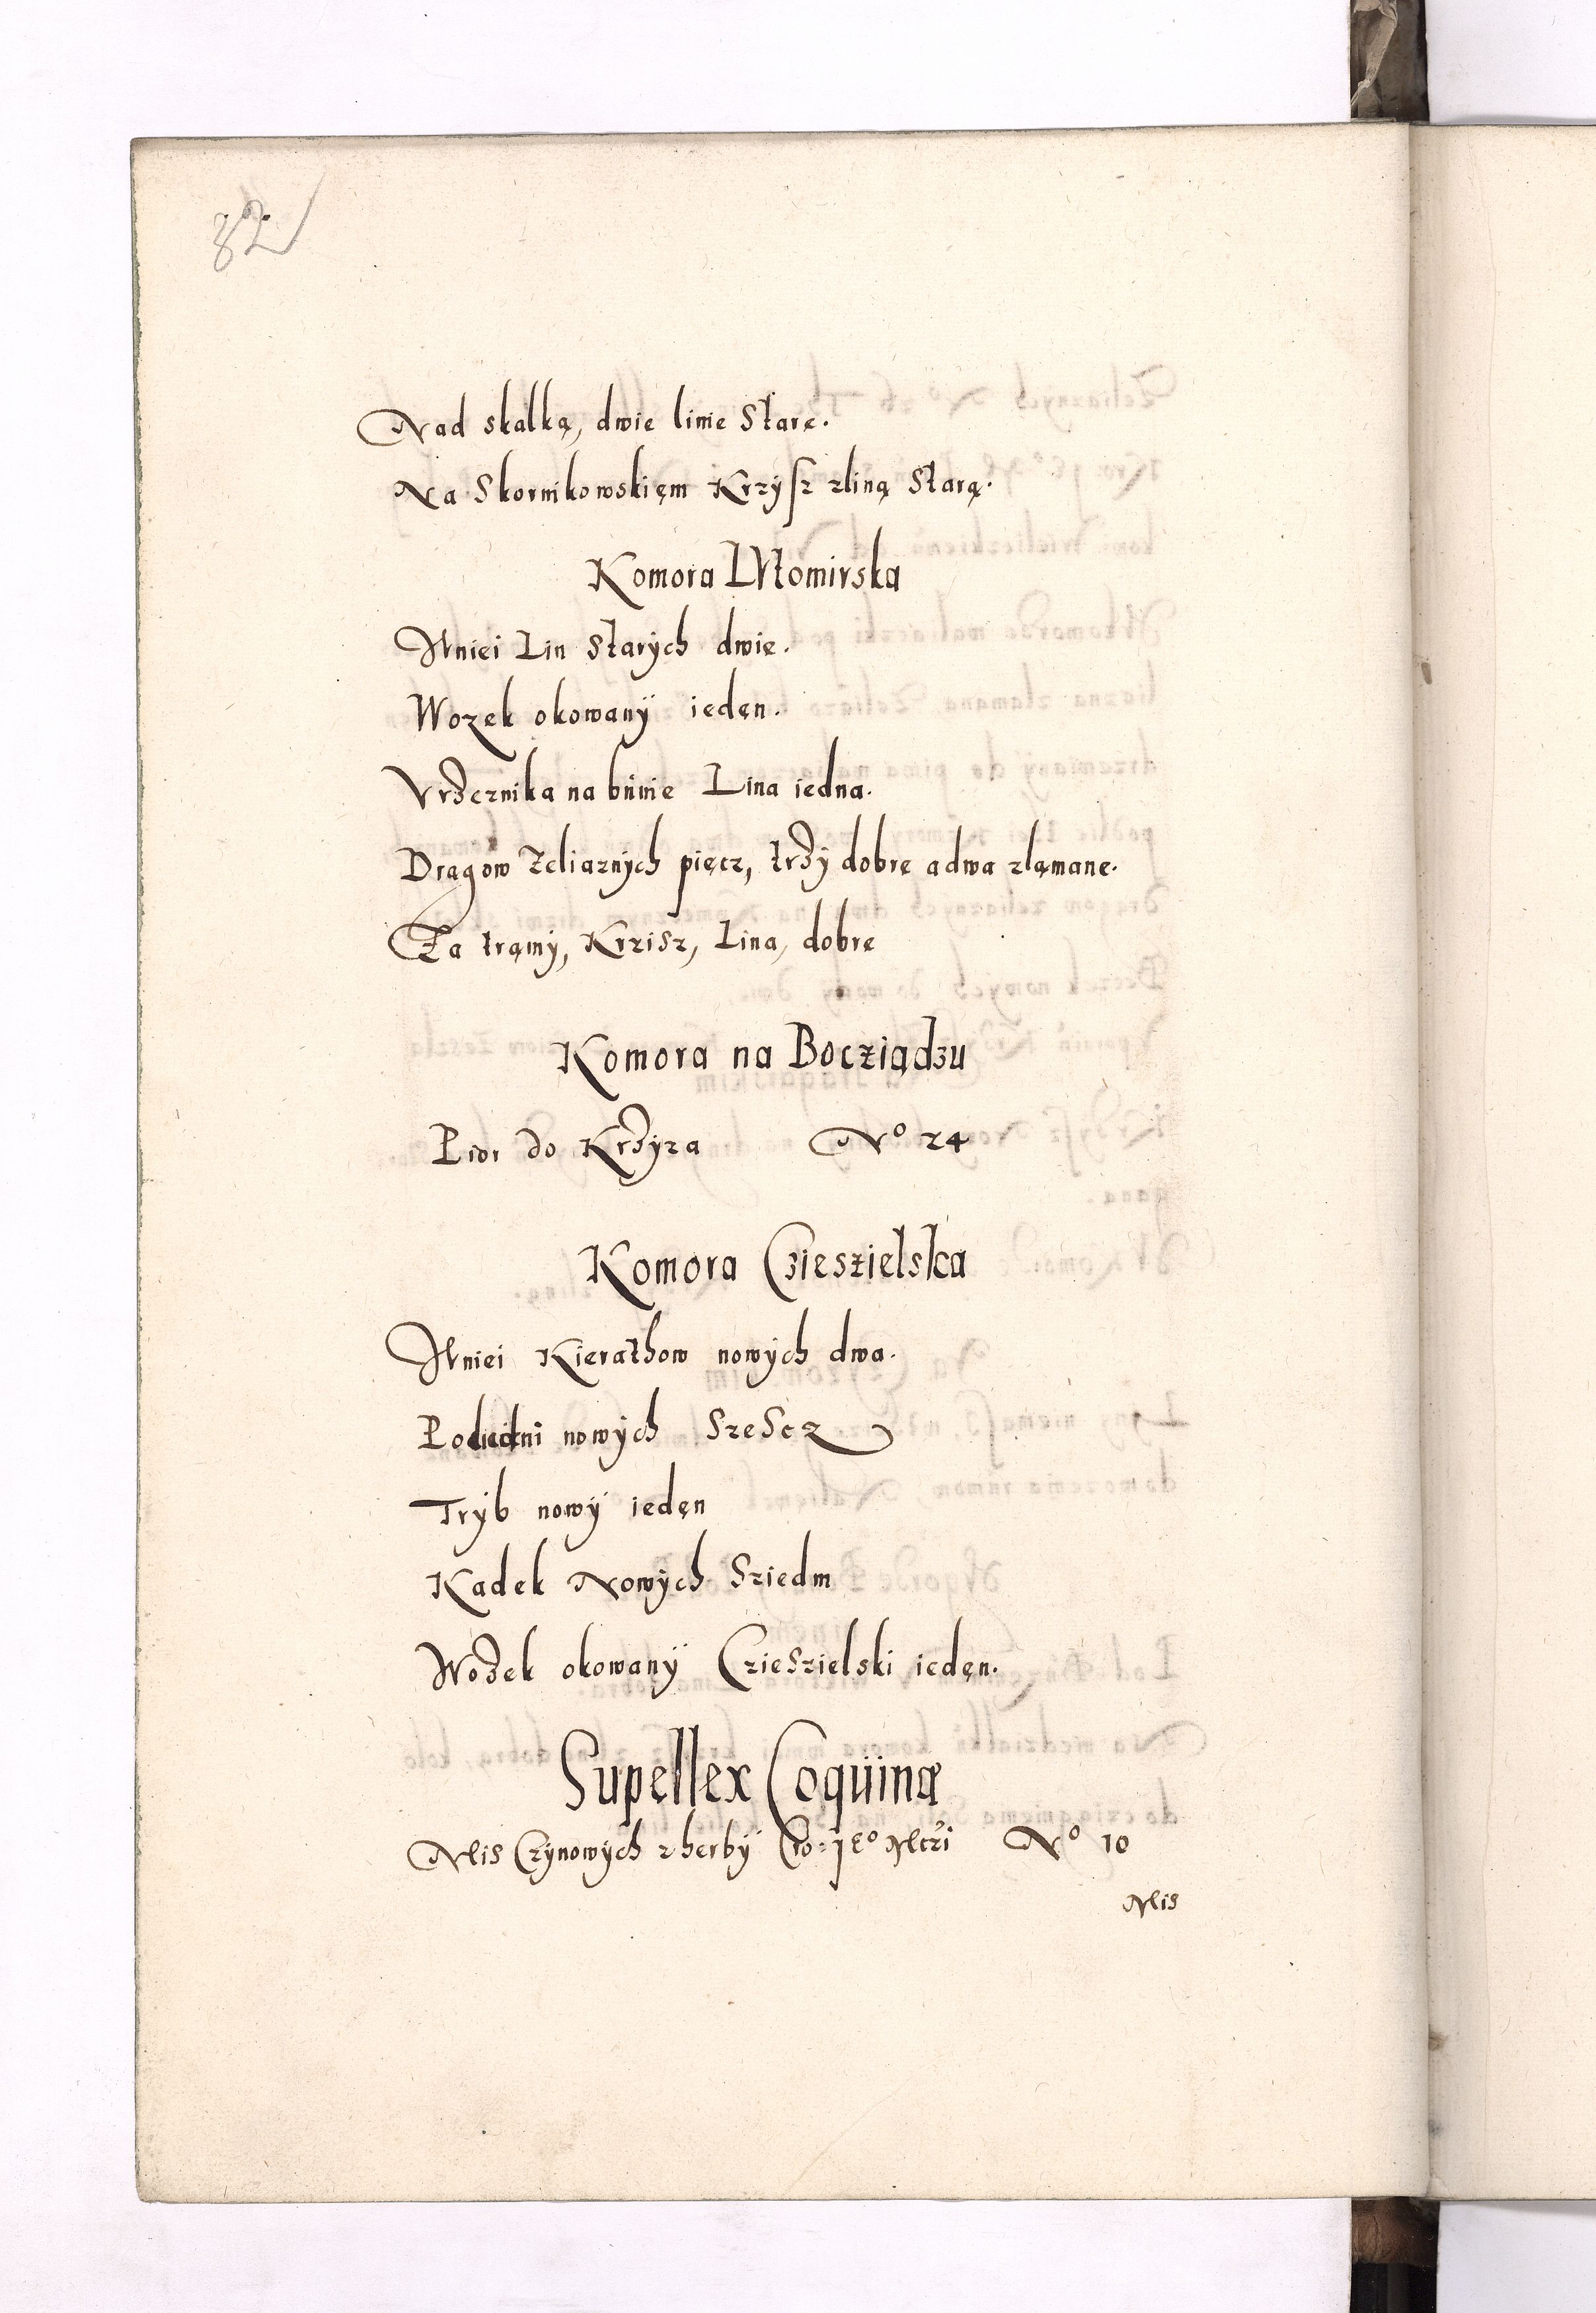 82
Nad skałką, dwie linie Starę.
Na Skornikowskięm Krzyſz zliną Starą.
Komora LVtomirska
Wniei Lin starých dwie.
Wozek okowaný iedęn.
Vrzęcznika na bninie Lina iedna.
Drągow żeliaznych pięcz, trzý dobrę adwa złąmanę.
Za trąmý, Krzisz, Lina, dobrę
Komora na Bocziądzu
Pior do Krzýza No 24
Komora Czieszielska
Wniei Kierathow nowých dwa.
nowých Szescz
Trýb nowý iedęn
Kadek Nowých Sziedm
Wozek okowaný Czieszielski iedęn.
Supellex Coquinæ
Mis Czynowých zherbý Kro: Jeo Mczi No 10
Mis